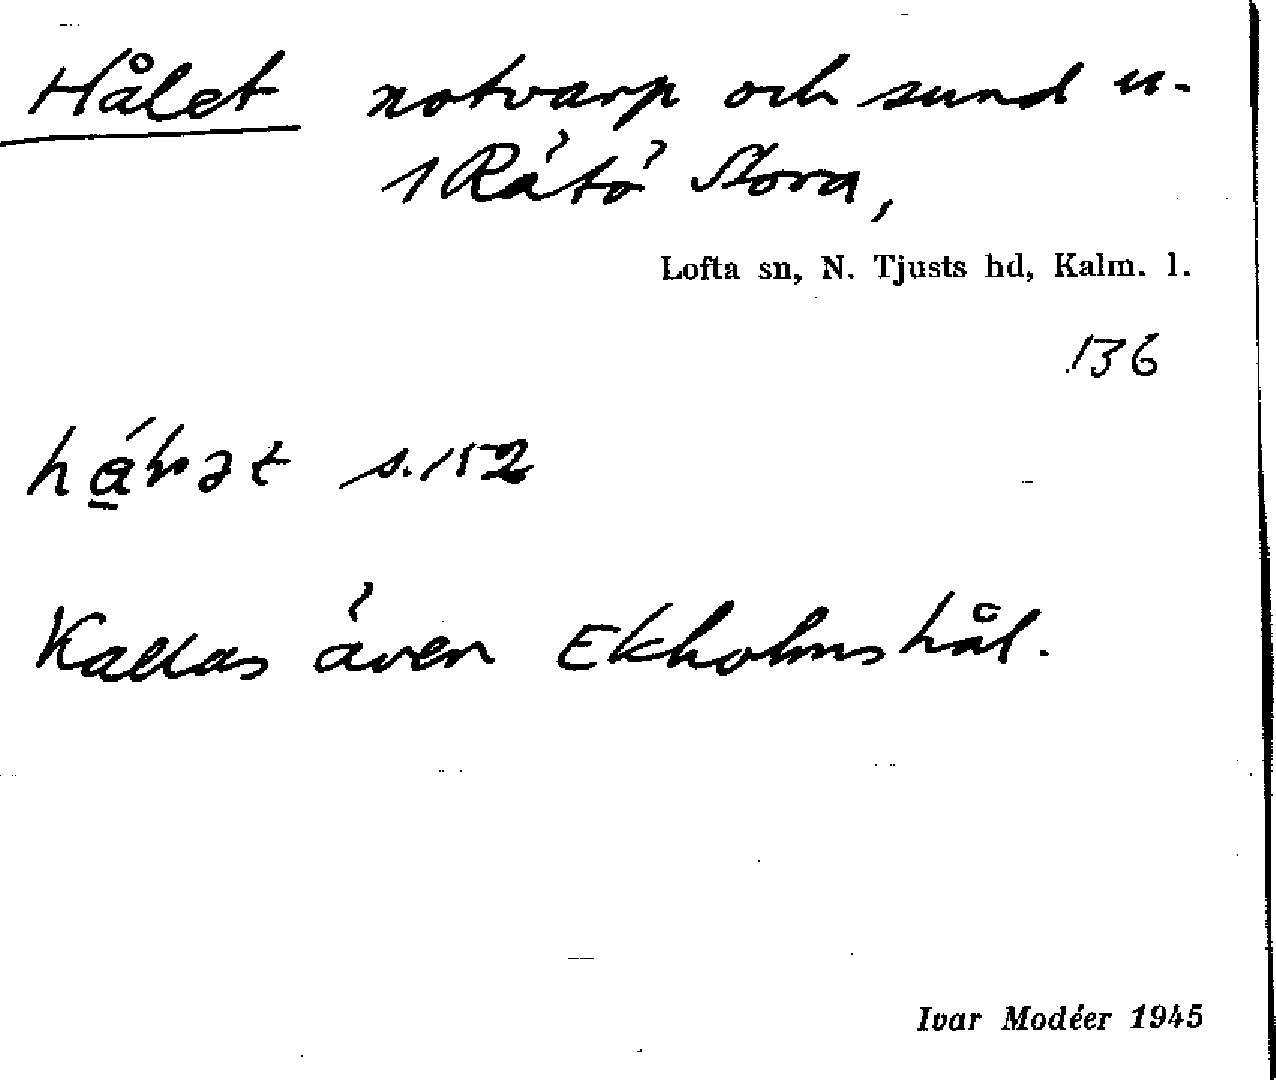 Hålet notvarp och sund u.
1 Rätö Stora,
Lofta sn, N. Tjusts hd, Kalm. l.
136
s. 152
Kallas även Ekholmshål.
Ivar Modéer 1945